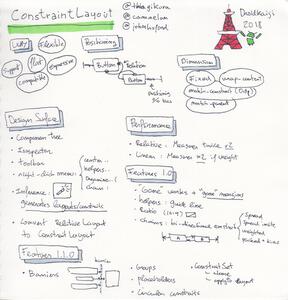 ConstraintLayout
@camaelon
DroidKaigi
2018
WHY
Flexible
Support
flat
expressive
compatible
Positioning
Button
Position
Button
positioning
Dimension
Fixed
wrap-content
match-constraint (0dp)
match-parent
Design Surface
• Component Tree
• Inspector
• toolbar
• right-click menu
center..
helpers..
organize..
chains..
• Inference
generates layouts/constraints
• Convert Relative Layout
to Constraint Layout
Performance
• Relative : Measure twice x2
• Linear : Measure x2 if weight
Features 1.0
• "Gone" views + "gone" margins
• helpers : guide line
• Ratio (16:9)
• chains : bi-directional constraints
A
B
Spread
Spread inside
weighted
packed + bias
Features 1.1.0
• Barriers
barrier
• Groups
• placeholders
• Circular constraints
• ConstraintSet
clone
apply to layout